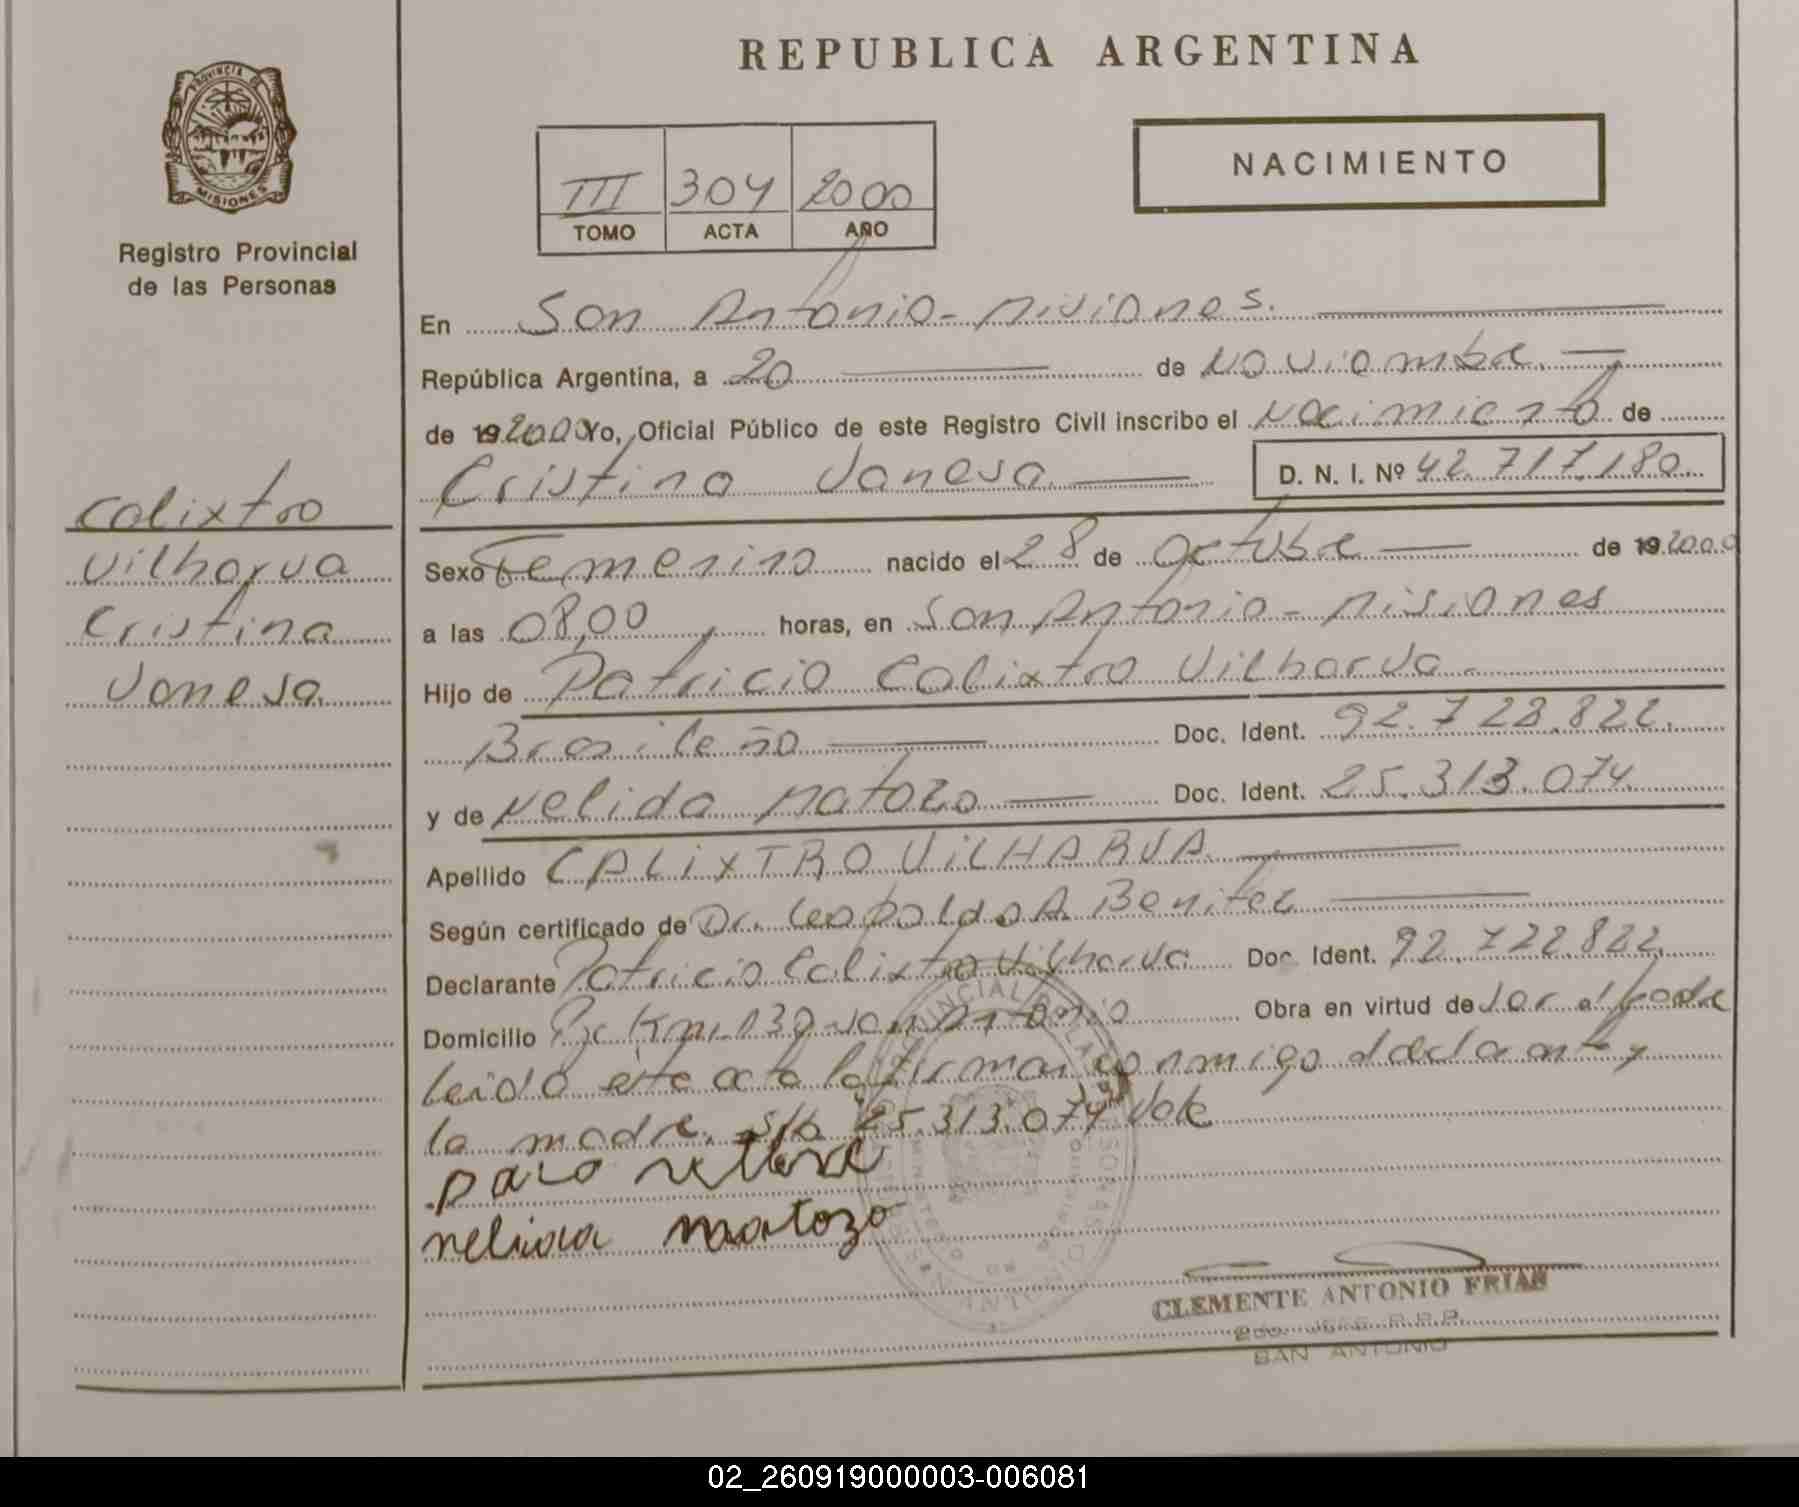 REPUBLICA ARGENTINA
PROVINCIA D MISIONES
Registro Provincial
de las Personas
NACIMIENTO
III 304 2000
TOMO ACTA AÑO
En San Antonio - Misiones.
República Argentina, a 20 de Noviembre
de 19 2000 Yo, Oficial Público de este Registro Civil inscribo el Nacimiento de
Cristina Vanesa D. N. I. Nº 42.717.180
Calixtro
Vilharva
Cristina
Vanesa
Sexo Femenino nacido el 28 de Octubre de 19 2000
a las 08,00 horas, en San Antonio - Misiones
Hijo de Patricio Calixtro Vilharva
Brasileño Doc. Ident. 92.722.822.
y de Nelida Matozo Doc. Ident. 25.313.074.
Apellido CALIXTRO VILHARVA
Según certificado de Dr. Leopoldo A. Benitez
Declarante Patricio Calixtro Vilharva Doc. Ident. 92.722.822.
Domicilio Km. 130 San Antonio Obra en virtud de Ser el Padre
leida esta acta la firman conmigo el declarante y
la madre. S/b "25.313.074" Vale
nelida matozo
CLEMENTE ANTONIO FRIAS
JEFE R.P.P.
SAN ANTONIO
02_260919000003-006081